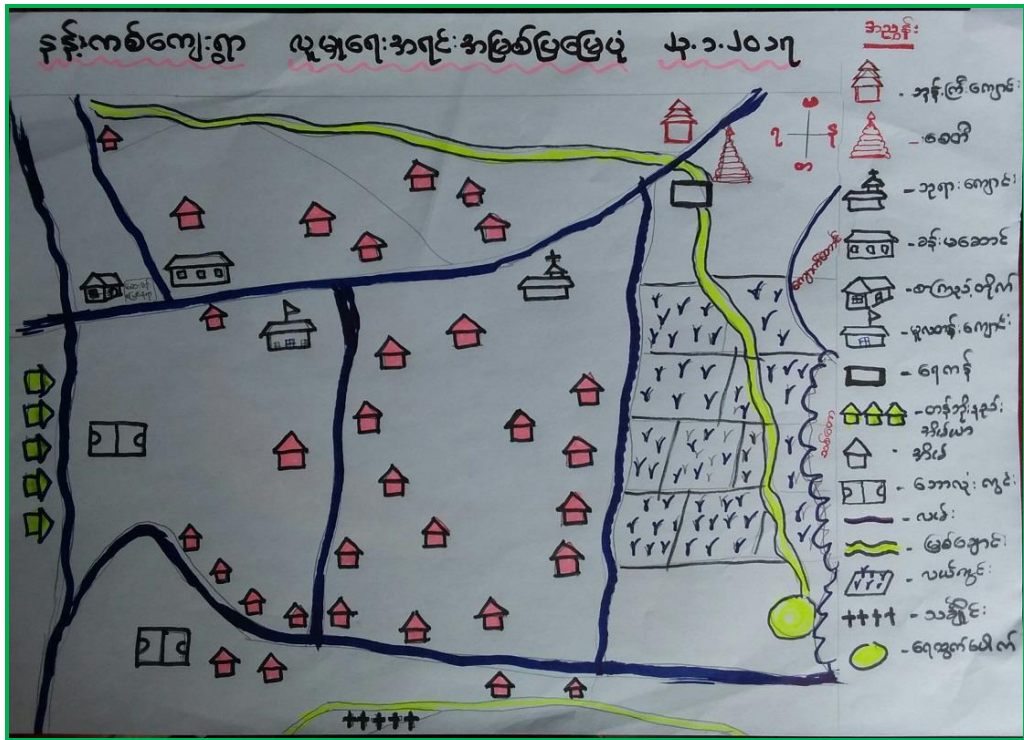 နန်းကစ်ကျေးရွာ လူမှုရေးအရင်းအမြစ်ပြမြေပုံ ၂၃.၁.၂၀၁၇
အညွှန်း
- ဘုန်းကြီးကျောင်း
- စေတီ
- ဘုရားကျောင်း
- ခန်းမဆောင်
- စာကြည့်တိုက်
- မူလတန်းကျောင်း
- ရေကန်
- တန်ဘိုးနည်း
အိမ်ယာ
- အိမ်
- ဘောလုံးကွင်း
- လမ်း
- မြစ်ချောင်း
- လယ်ကွင်း
- သင်္ချိုင်း
- ရေထွက်ပေါက်
မ
ရ
န
တ